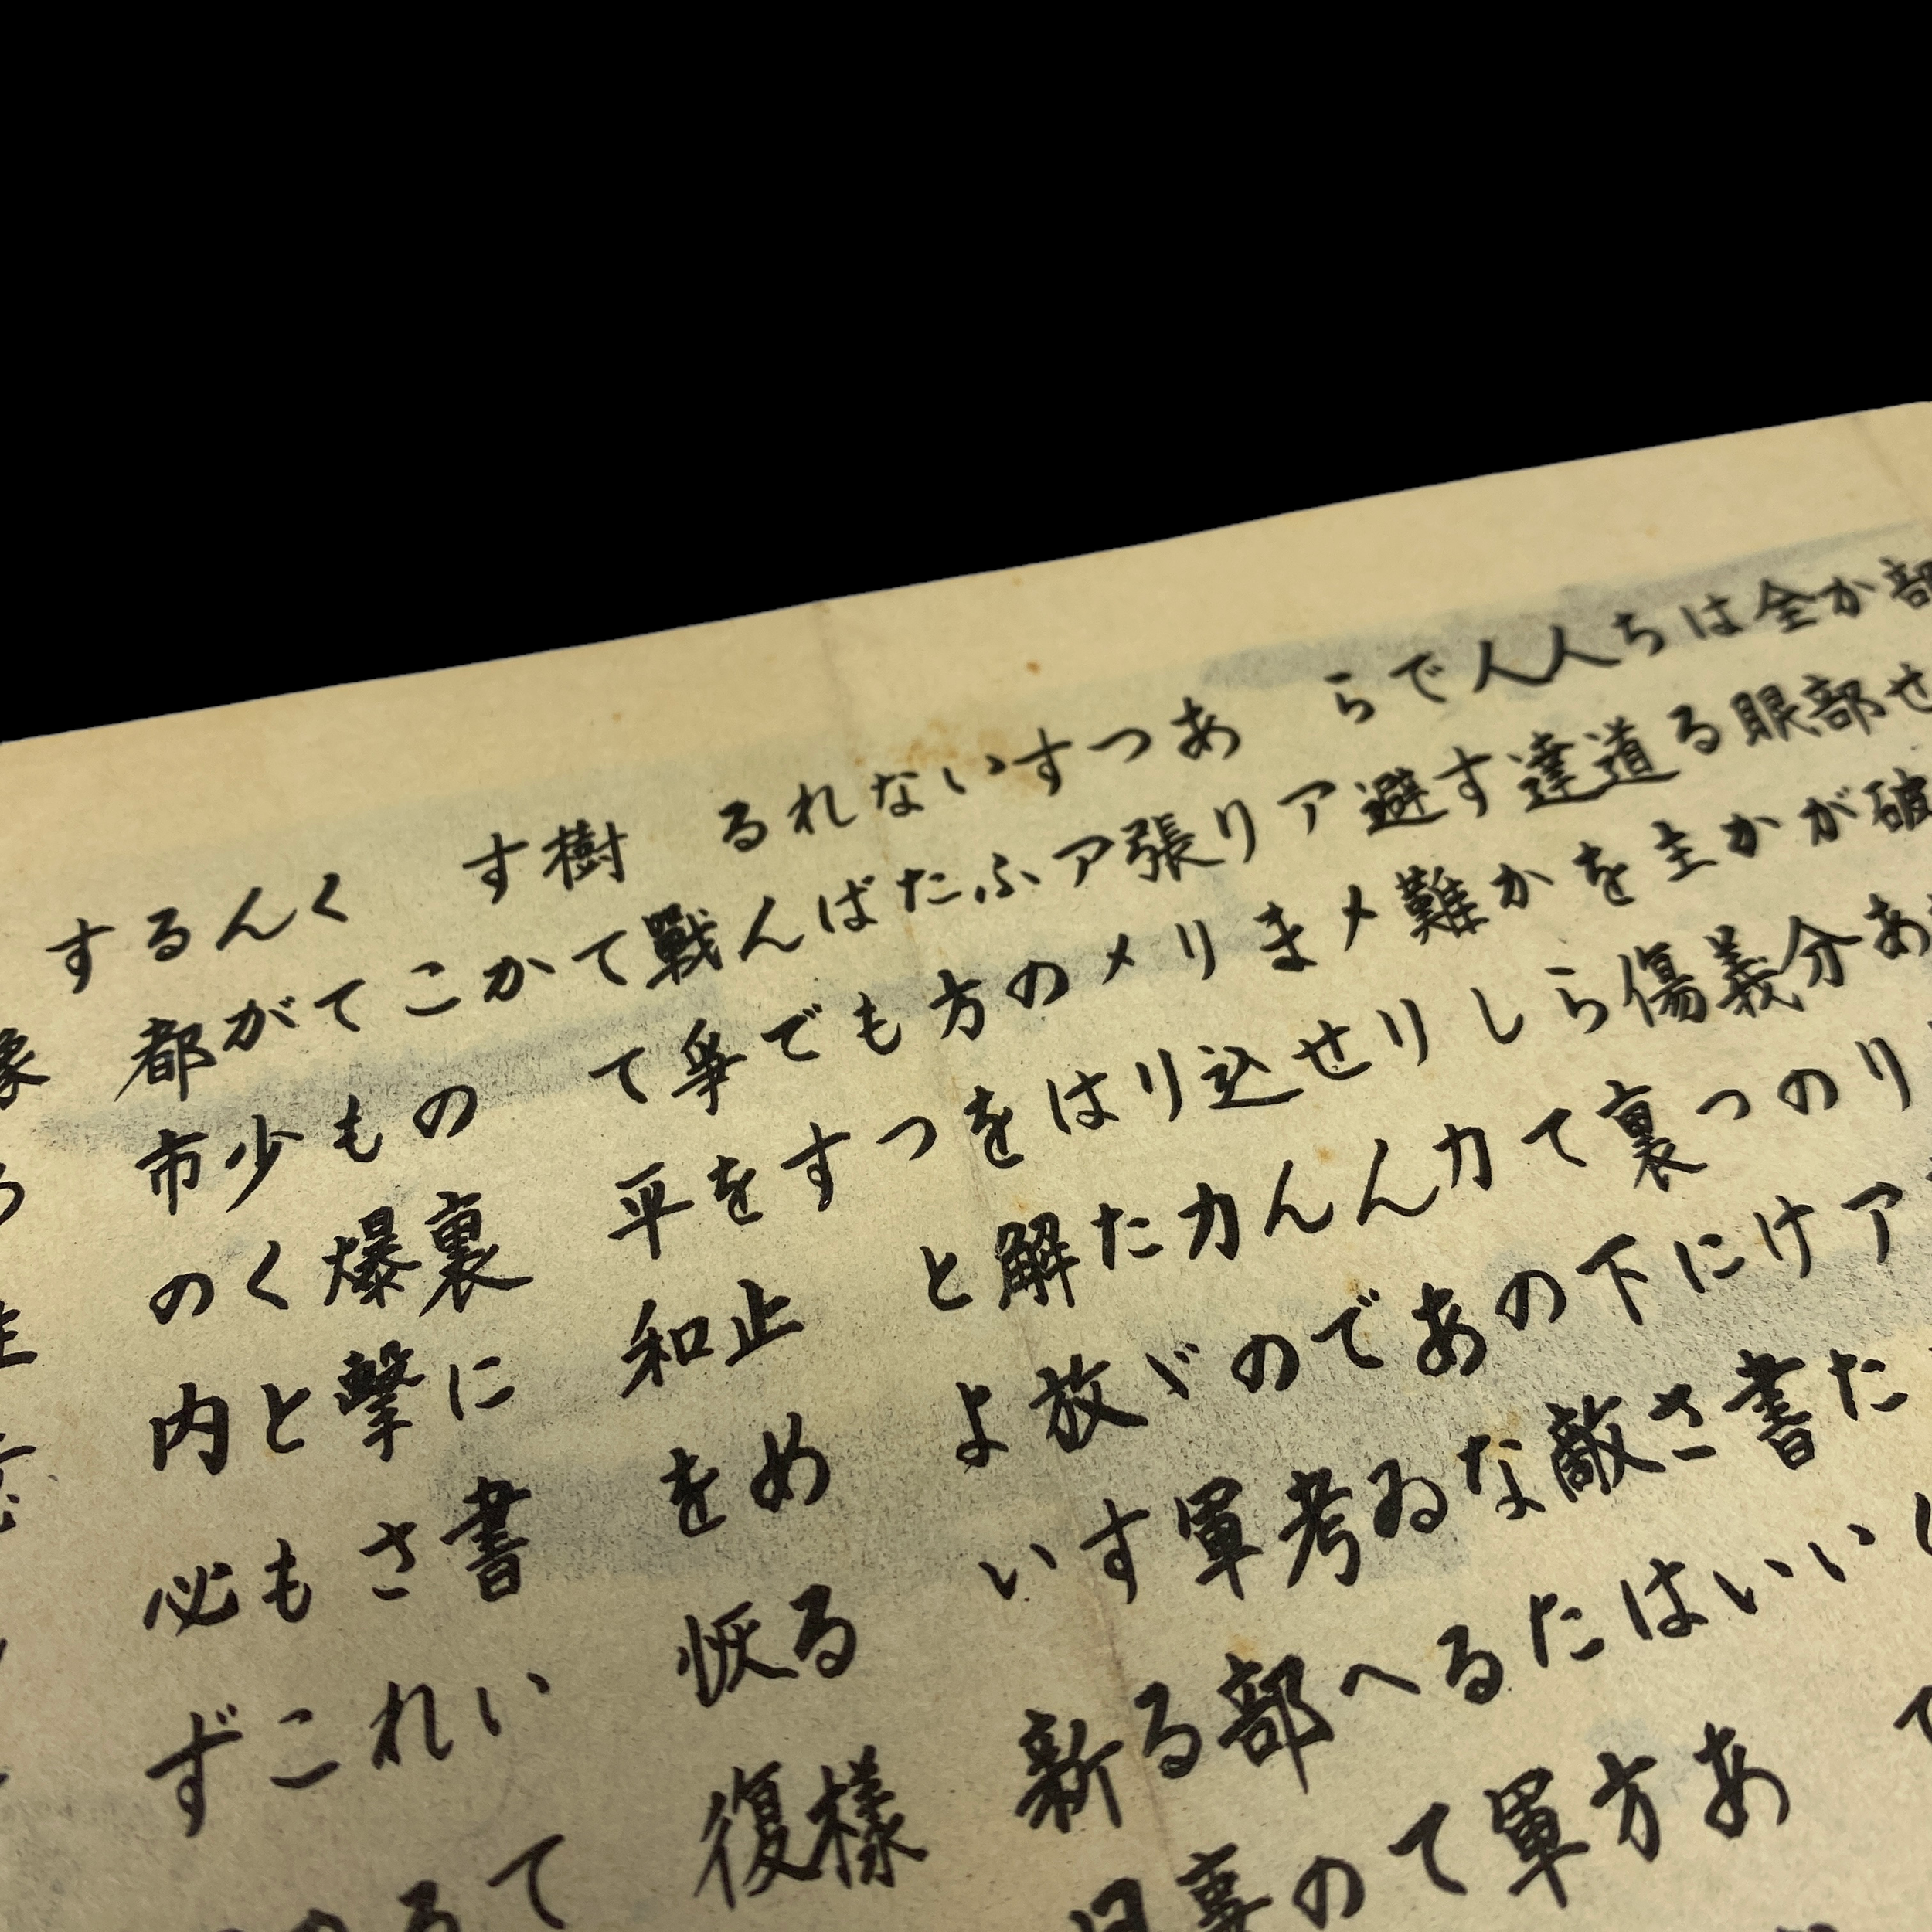 部
かせ
全部破
は眼があ
ちるか分り
人道主義のア
人達を傷つけた
ですから裏に書い
ら避難して下さい
アメリカの敵はあ
ありませんあなた方
つ張り込んでゐる軍
すアメリカの考へて
いふのはたヾ軍部の
なた方を解放する事
ればもつとよい新日
るんです
戰爭を止める樣
樹てて平和を恢復
すか
この裏に書いて
くても爆撃される
んが少くともこの
る都市の内必ず
す